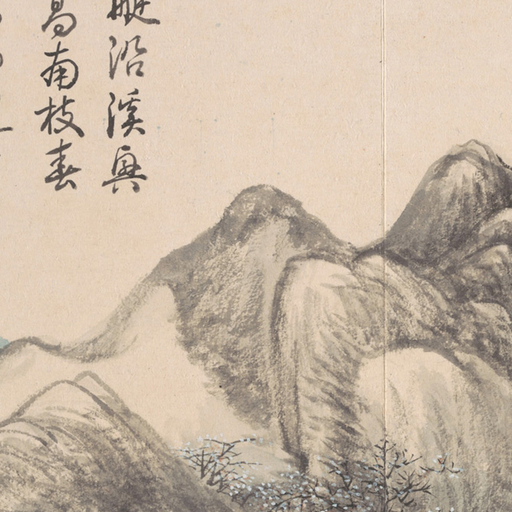 艇沿溪興
南枝春